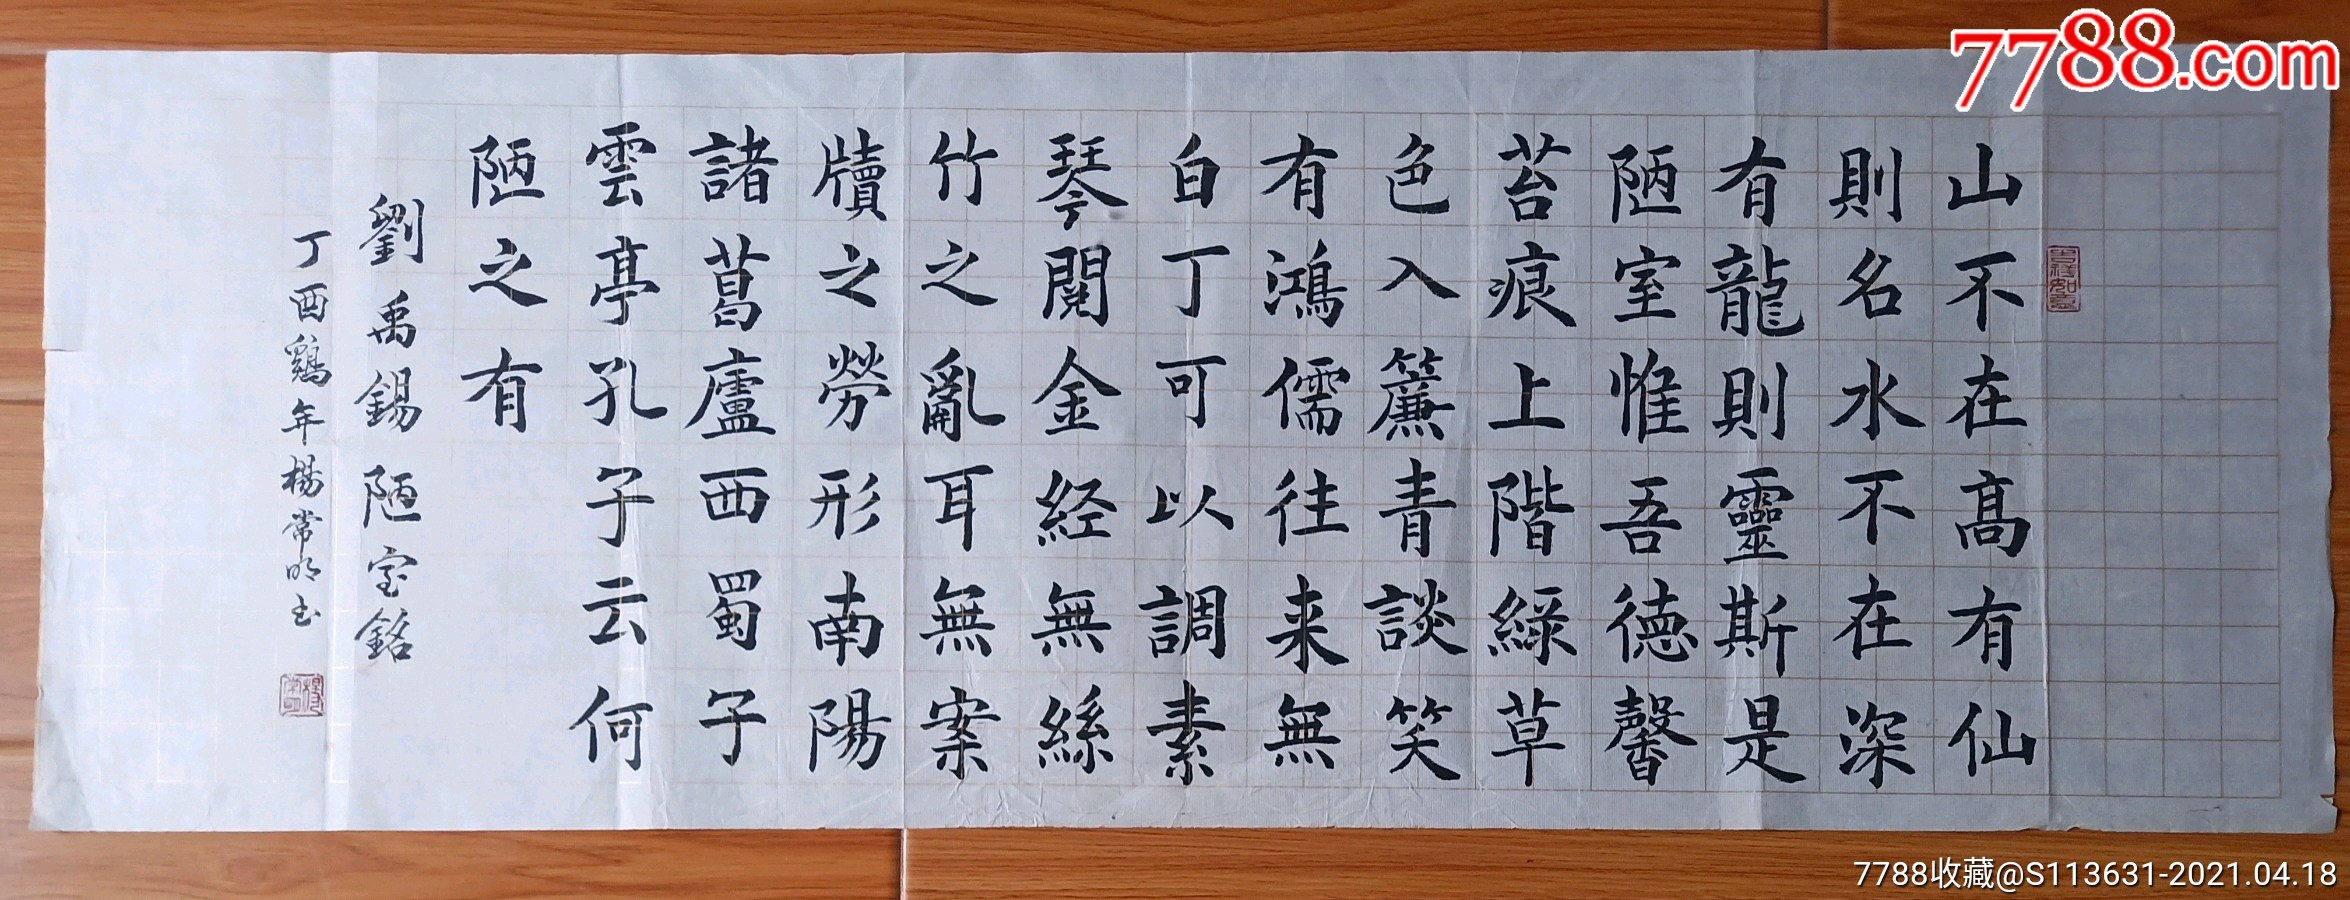 山不在高有仙
則名水不在深
有龍則靈斯是
陋室惟吾德馨
苔痕上階綠草
色入簾青談笑
有鴻儒往来無
白丁可以調素
琴閱金经無絲
竹之亂耳無案
牘之勞形南陽
諸葛廬西蜀子
雲亭孔子云何
陋之有
劉禹錫陋室銘
丁酉鷄年楊常明书
吉祥如意
7788.com
7788收藏@S113631-2021.04.18